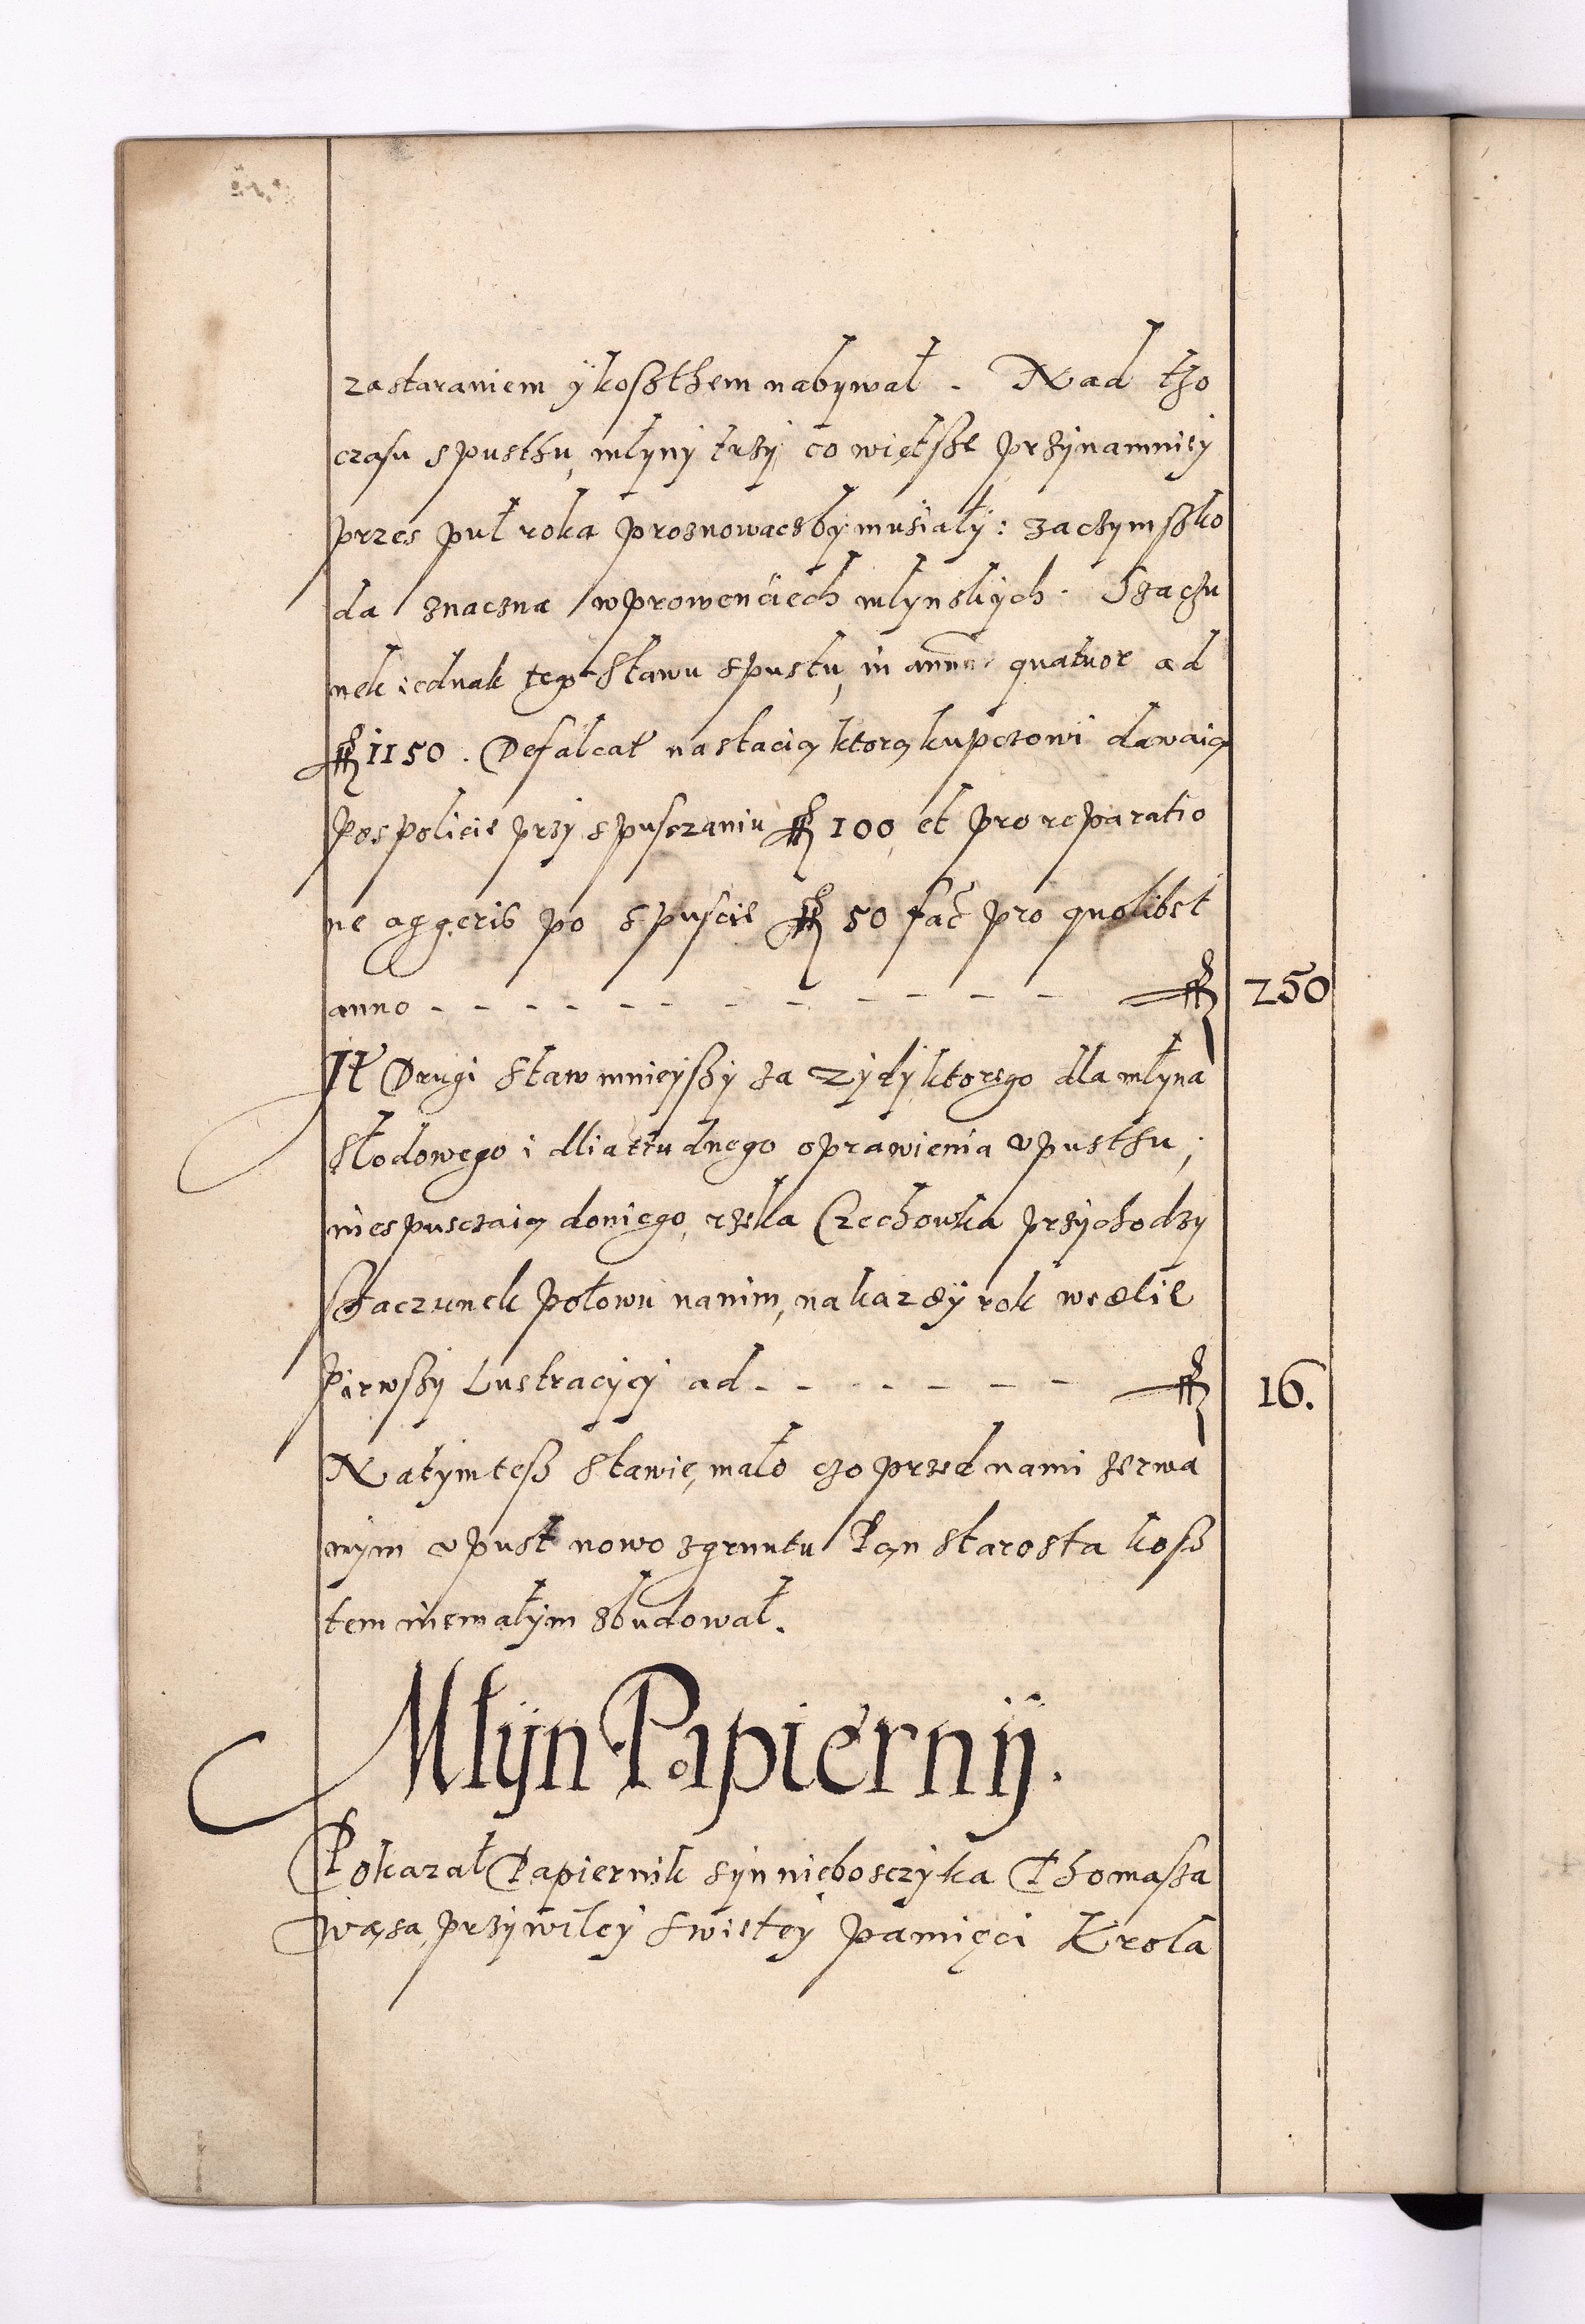 zastaraniem ÿ koßthem nabywał. Nad tho
czasu spusthu, młyny trzy co większe przynamniey
przes puł roka proznowaczby musiały: zaczym szko
da znaczna wprowenciech młynskych. Szaczu
nek iednak teg° stawu spustu, in annis quatuor ad
fl 1150. Defalcał nastacią ktorą kupczowi dawaią
pospolicie przy spusczaniu fl 100, et pro reparatio
ne aggeris po spuscie fl 50 fać pro quolibet
anno - - - - - - - - - - - - fl 250
It Drugi staw mnieyszy za Zydy ktorego dla młyna
słodowego i dlia trudnego oprawienia upusthu,
niespusczaią doniego, rzeka Czechowka przychodzy
szaczunek połowu nanim, na kazdÿ rok wedlie
pirwszy Lustracyey ad - - - - - - - fl 16.
Natym tesz stawie, mało czo przed nami zerwa
nym upust nowo zgruntu Pan Starosta kosz
tem niemałym zbudował.
Młyn Papierny.
Pokazał Papiernik syn nieboszczyka Thomasza
wąsa, przywiley swietey pamięci Krola